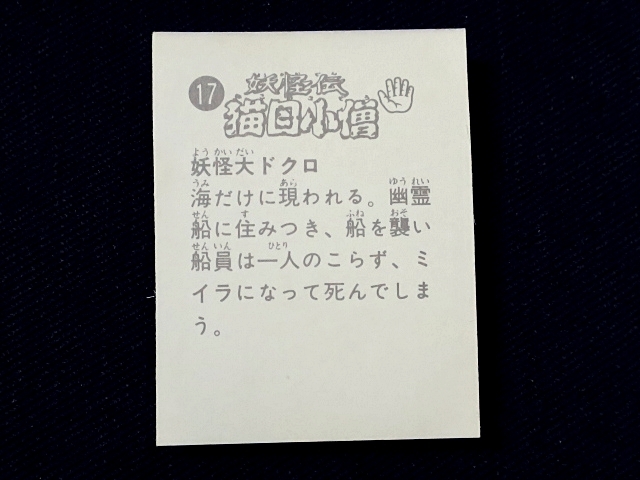 17
妖怪伝
猫目小僧
妖怪大ドクロ
海だけに現われる。幽霊
船に住みつき、船を襲い
船員は一人のこらず、ミ
イラになって死んでしま
う。